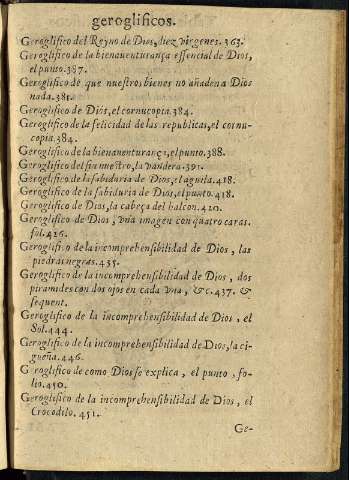 geroglificos.
Geroglifico del Reyno de Dios, diez virgenes. 363.
Geroglifico de la bienauenturança essencial de Dios,
el punto. 387.
Geroglifico de que nuestros bienes no añaden a Dios
nada. 381.
Geroglifico de Dios, el cornucopia. 384.
Geroglifico de la felicidad de las republicas, el cornu-
copia. 384.
Geroglifico de la bienauenturança, el punto. 388.
Geroglifico del fin nuestro, la vandera. 391.
Geroglifico de la sabiduria de Dios, el aguila. 418.
Geroglifico de la sabiduria de Dios, el punto. 418.
Geroglifico de Dios, la cabeça del halcon. 420.
Geroglifico de Dios, vna imagen con quatro caras.
fol. 426.
Geroglifico de la incomprehensibilidad de Dios, las
piedras negras. 435.
Geroglifico de la incomprehensibilidad de Dios, dos
piramides con dos ojos en cada vna, &c. 437. &
sequent.
Geroglifico de la incomprehensibilidad de Dios, el
Sol. 444.
Geroglifico de la incomprehensibilidad de Dios, la ci-
gueña. 446.
Geroglifico de como Dios se explica, el punto, fo-
lio. 450.
Geroglifico de la incomprehensibilidad de Dios, el
Crocodilo. 451.
Ge-